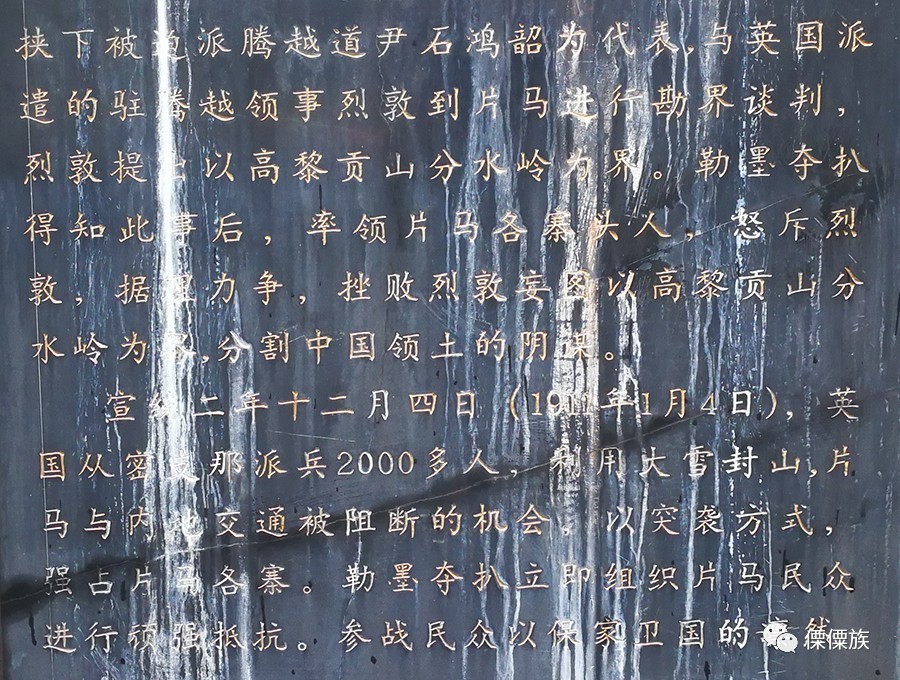 挟下被迫派腾越道尹石鸿韶为代表,与英国派
遣的驻腾越领事烈敦到片马进行勘界谈判,
烈敦提出以高黎贡山分水岭为界。勒墨夺扒
得知此事后,率领片马各寨头人,怒斥烈
敦,据理力争,挫败烈敦妄图以高黎贡山分
水岭为界,分割中国领土的阴谋。
宣统二年十二月四日(1911年1月4日),英
国从密支那派兵2000多人,利用大雪封山,片
马与内地交通被阻断的机会,以突袭方式,
强占片马各寨。勒墨夺扒立即组织片马民众
进行顽强抵抗。参战民众以保家卫国的
傈僳族